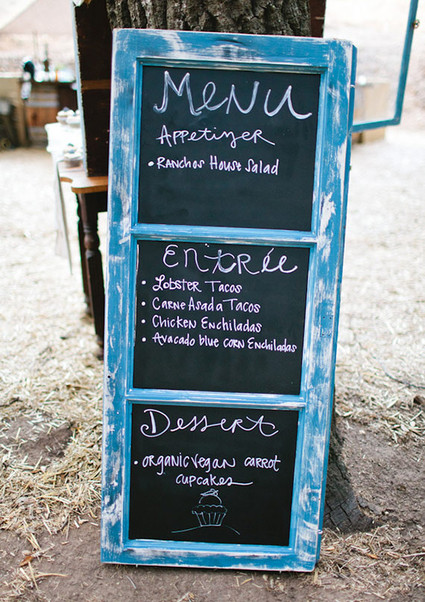 Menu
Appetizer
• Ranchos House Salad
Entrée
• Lobster Tacos
• Carne Asada Tacos
• Chicken Enchiladas
• Avacado blue corn Enchiladas
Dessert
• organic vegan carrot
cupcakes